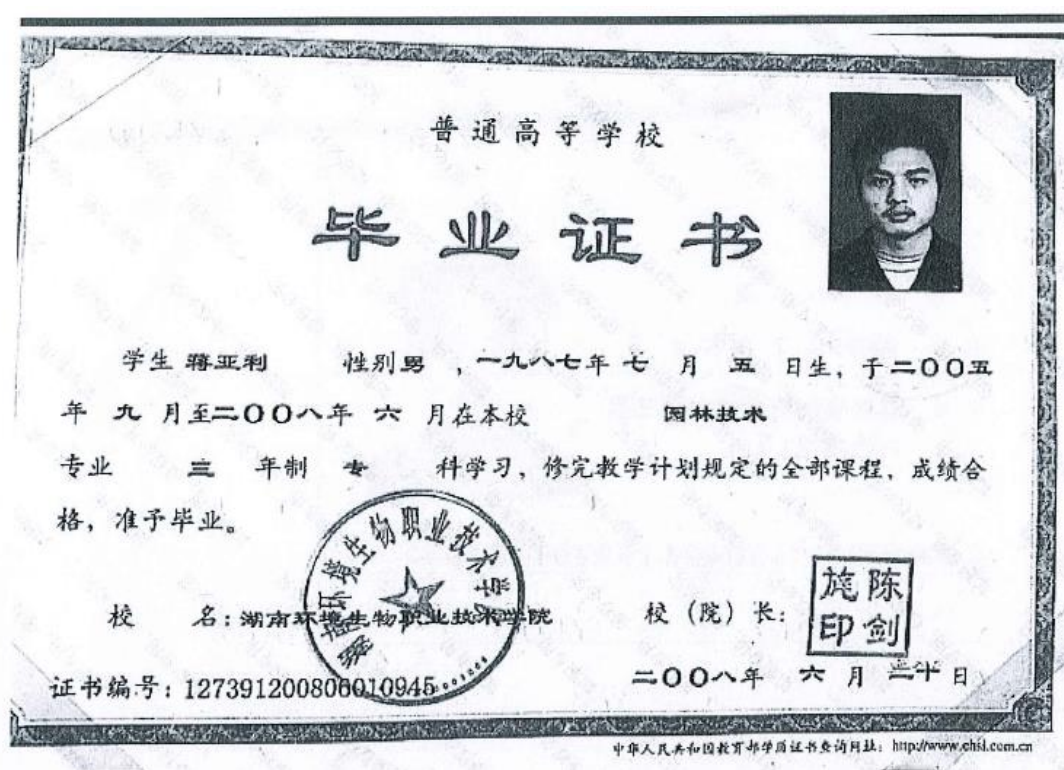 普通高等学校
毕业证书
学生 蒋亚利 性别男 ，一九八七年 七 月 五 日生，于二〇〇五
年 九 月至二〇〇八年 六 月在本校 园林技术
专业 三 年制 专 科学习，修完教学计划规定的全部课程，成绩合
格，准予毕业。
湖南环境生物职业技术学院
校 名：湖南环境生物职业技术学院 校（院）长：
陈剑旄印
证书编号：127391200806010945 二〇〇八年 六 月 三十 日
中华人民共和国教育部学历证书查询网址：http://www.chsi.com.cn